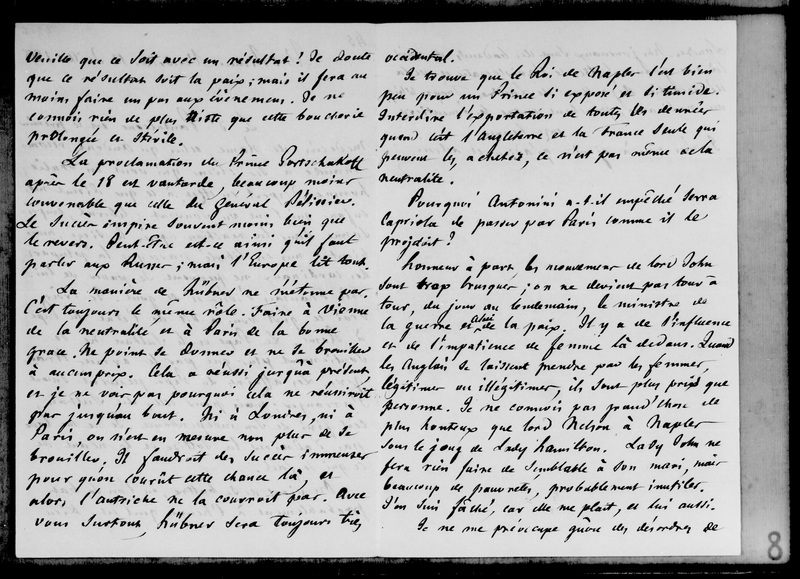 veuille que ce soit avec un résultat ! Je doute
que ce résultat soit la paix ; mais il fera au
moins faire un pas aux événemens. Je ne
connois rien de plus triste que cette boucherie
prolongée et stérile.
La proclamation du Prince Gortschakoff
après le 18 est vantarde, beaucoup moins
convenable que celle du général Pélissier.
Le succès inspire souvent moins bien que
le revers. Peut-être est-ce ainsi qu'il faut
parler aux Russes ; mais l'Europe lit tout.
La manière de Hübner ne m'étonne pas.
C'est toujours le même rôle. Faire à Vienne
de la neutralité et à Paris de la bonne
grace. Ne point se donner et ne se brouiller
à aucun prix. Cela a réussi jusqu'à présent
et je ne vois pas pourquoi cela ne réussiroit
pas jusqu'au bout. Ni à Londres, ni à
Paris, on n'est en mesure non plus de se
brouiller. Il faudroit des succès immenses
pour qu'on courût cette chance là, et
alors l'Autriche ne la courroit pas. Avec
vous surtout, Hübner sera toujours très
occidental.
Je trouve que le Roi de Naples l'est bien
peu pour un Prince si exposé et si timide.
Interdire l'exportation de toutes les denrées
quand c'est l'Angleterre et la France seules qui
peuvent les acheter, ce n'est pas même de la
neutralité.
Pourquoi Antonini a-t-il empêché Serra
Capriola de passer par Paris comme il le
projetait ?
Honneur à part, les mouvemens de lord John
sont trop brusques ; on ne devient pas tour à
tour, du jour au lendemain, le ministre de
la guerre et celui de la paix. Il y a de l'influence
et de l'impatience de femme là dedans. Quand
les Anglais se laissent prendre par les femmes,
légitimes ou illégitimes, ils sont plus pris que
personne. Je ne connois pas grand'chose de
plus honteux que lord Nelson à Naples
sous le joug de Lady Hamilton. Lady John ne
fera rien faire de semblable à son mari, mais
beaucoup de pauvretés, probablement inutiles.
J'en suis fâché, car elle me plaît, et lui aussi.
Je ne me préoccupe guère des désordres de
8